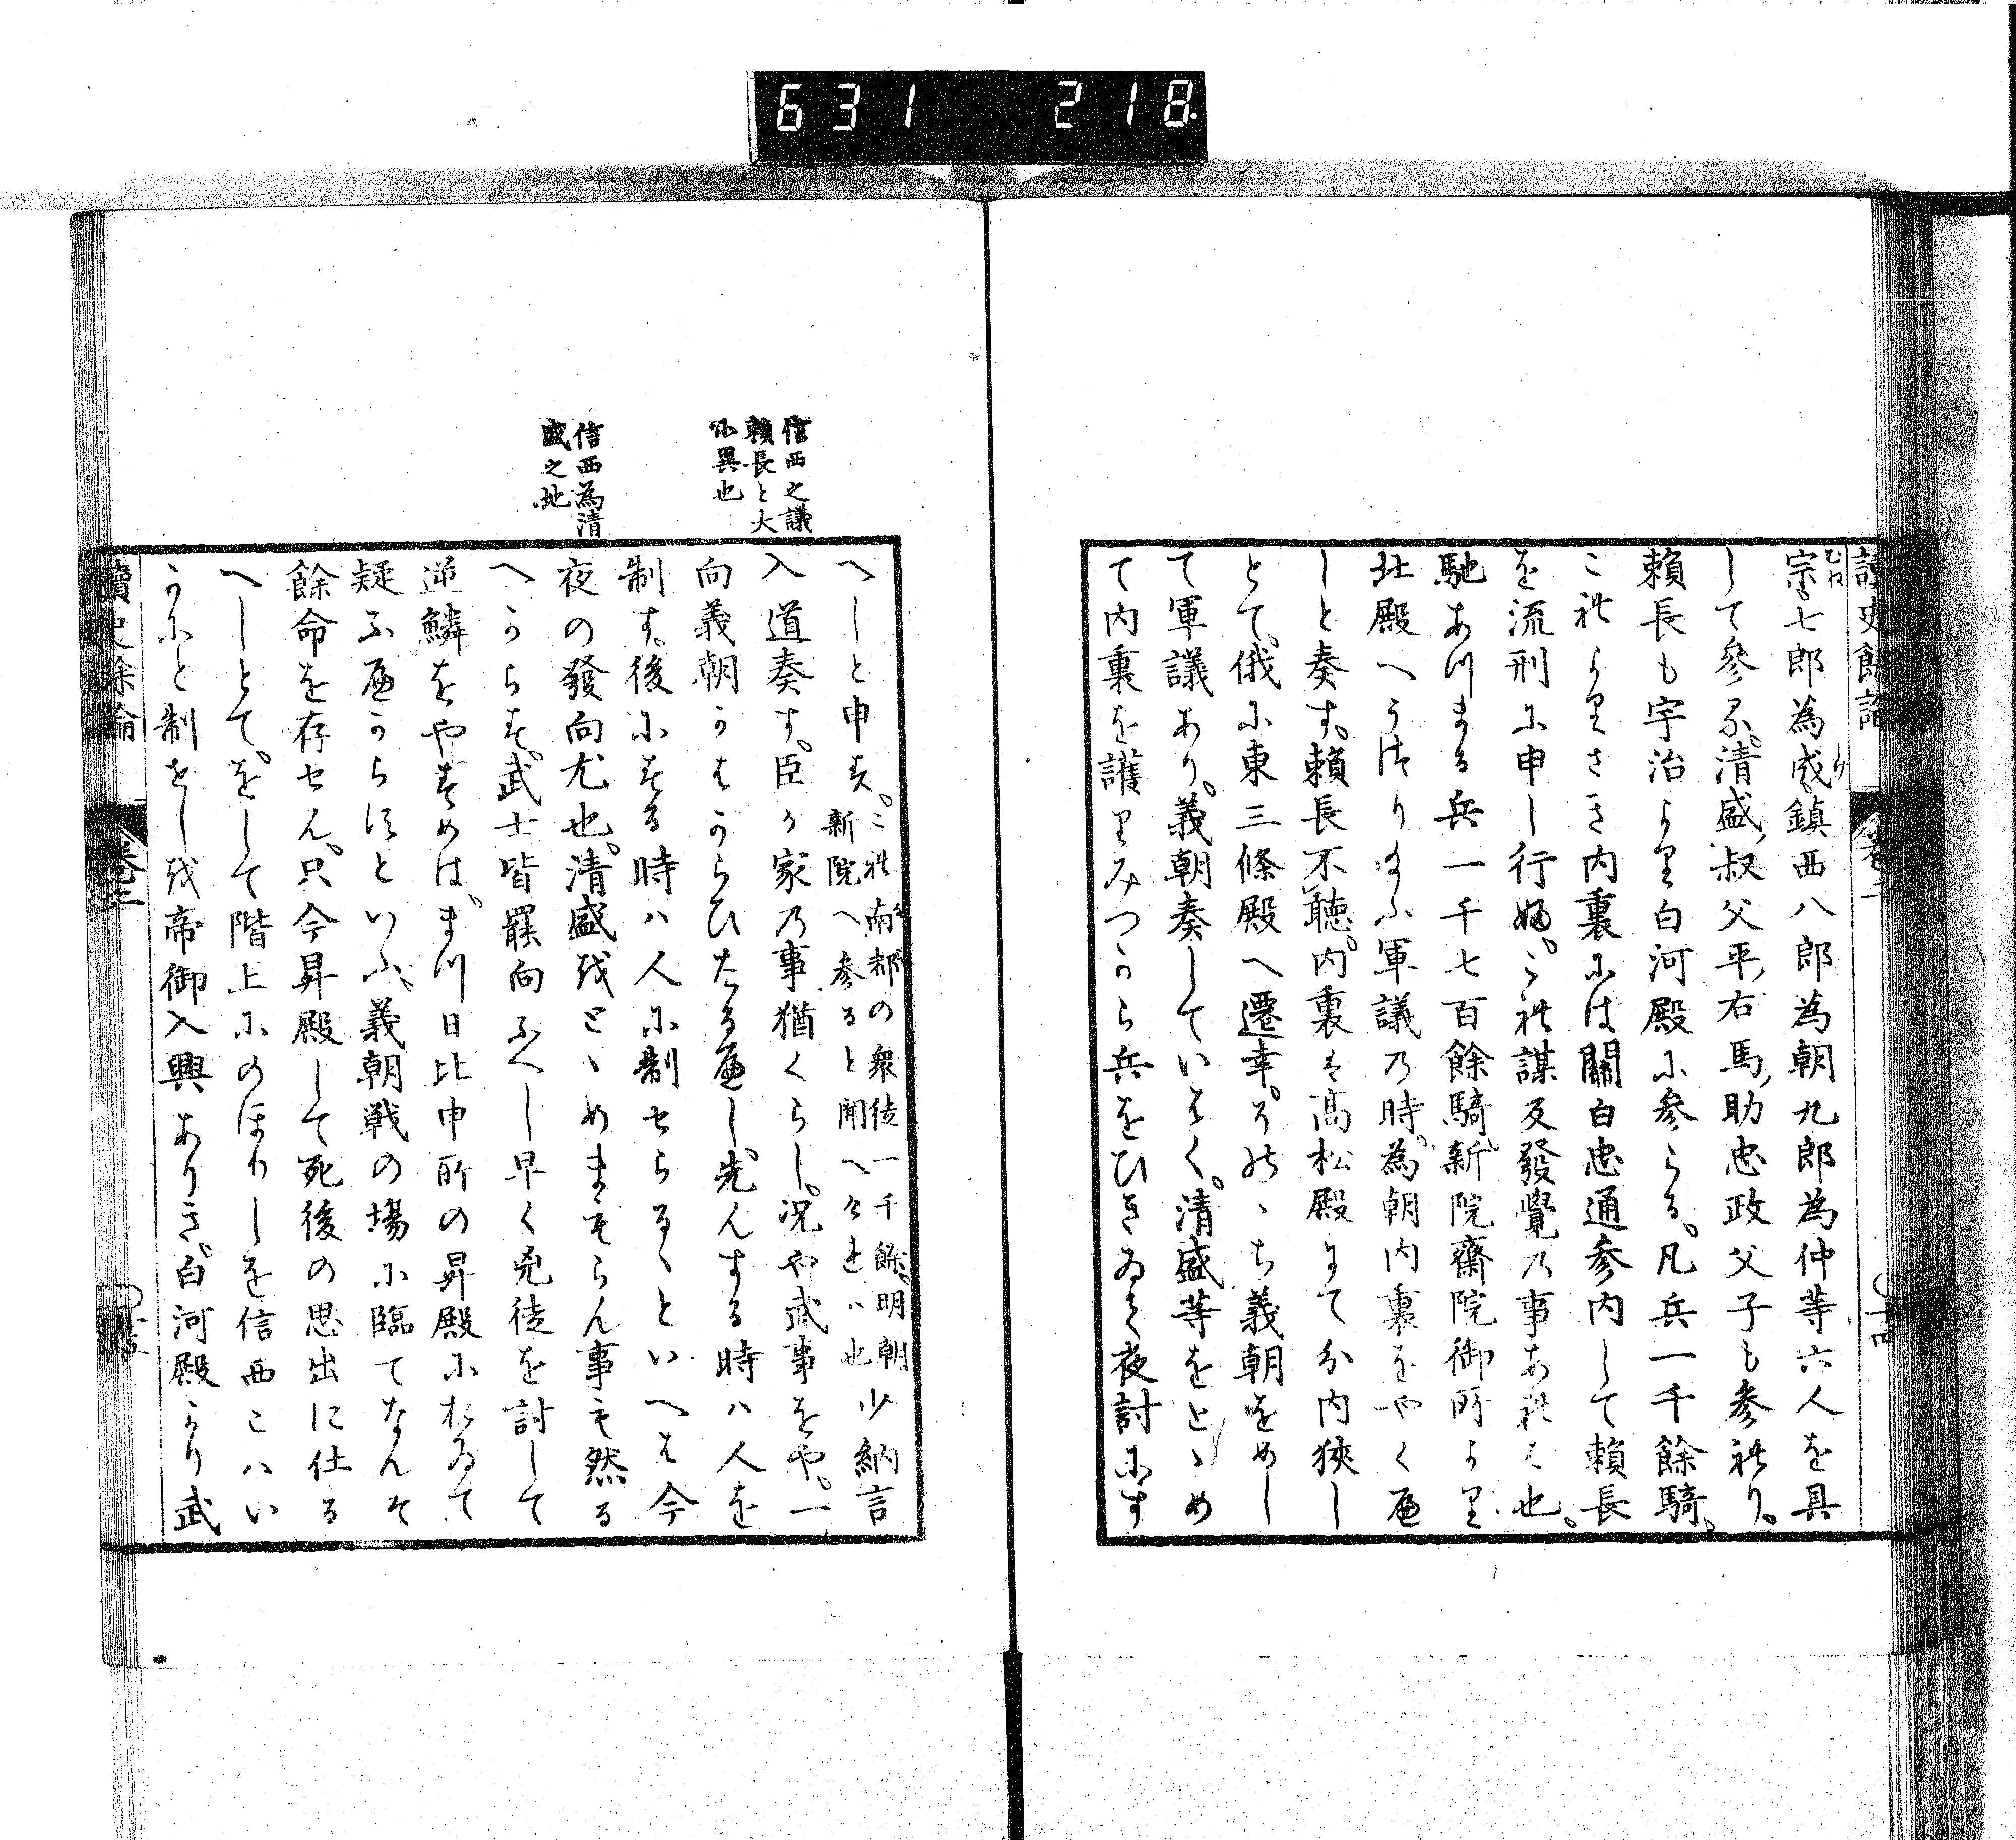 631 218
讀史餘論 卷二 十四
宗七郎為成鎮西八郎為朝九郎為仲等六人を具
して參る。清盛、叔父平、右馬、助忠政父子も參れり。
賴長も宇治より白河殿に參らる。凡兵一千餘騎。
これよりさき内裏には關白忠通參内して賴長
を流刑に申し行ふ。これ謀反發覺の事あれは也。
馳あつまる兵一千七百餘騎新院齋院御所より
北殿へうつり給ふ軍議の時。為朝内裏をやくへ
しと奏す。賴長不聽。内裏は高松殿にて分内狹し
とて。俄に東三條殿へ遷幸。そのゝち義朝をめし
て軍議あり。義朝奏していはく。清盛等をとゝめ
て内裏を護りみつから兵をひきゐて夜討にす
へしと申す。
これ南都の衆徒一千餘、明朝
新院へ參ると聞へけれは也
少納言
入道奏す。臣か家の事猶くらし。況や武事をや。一
向義朝かはからひたるへし。先んする時ハ人を
制す。後にする時ハ人に制せらるゝといへは今
夜の發向尤也。清盛をとゝめまもらん事も然る
へからす。武士皆罷向ふへし早く兇徒を討して
逆鱗をやすめは。まつ日比申所の昇殿におゐて
疑ふへからすといふ。義朝戰の場に臨てなんそ
餘命を存せん。只今昇殿して死後の思出に仕る
へしとて。をして階上にのほりしを信西こハい
かにと制をし我帝御入興ありき。白河殿より武
信西之議
賴長と大
ニ異也
信西為清
盛之地
讀史餘論 卷二